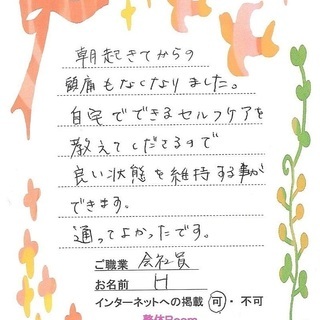 朝起きてからの
頭痛もなくなりました。
自宅でできるセルフケアを
教えてくださるので
良い状態を維持する事が
できます。
通ってよかったです。
ご職業 会社員
お名前 H
インターネットへの掲載 可・不可
整体日.com